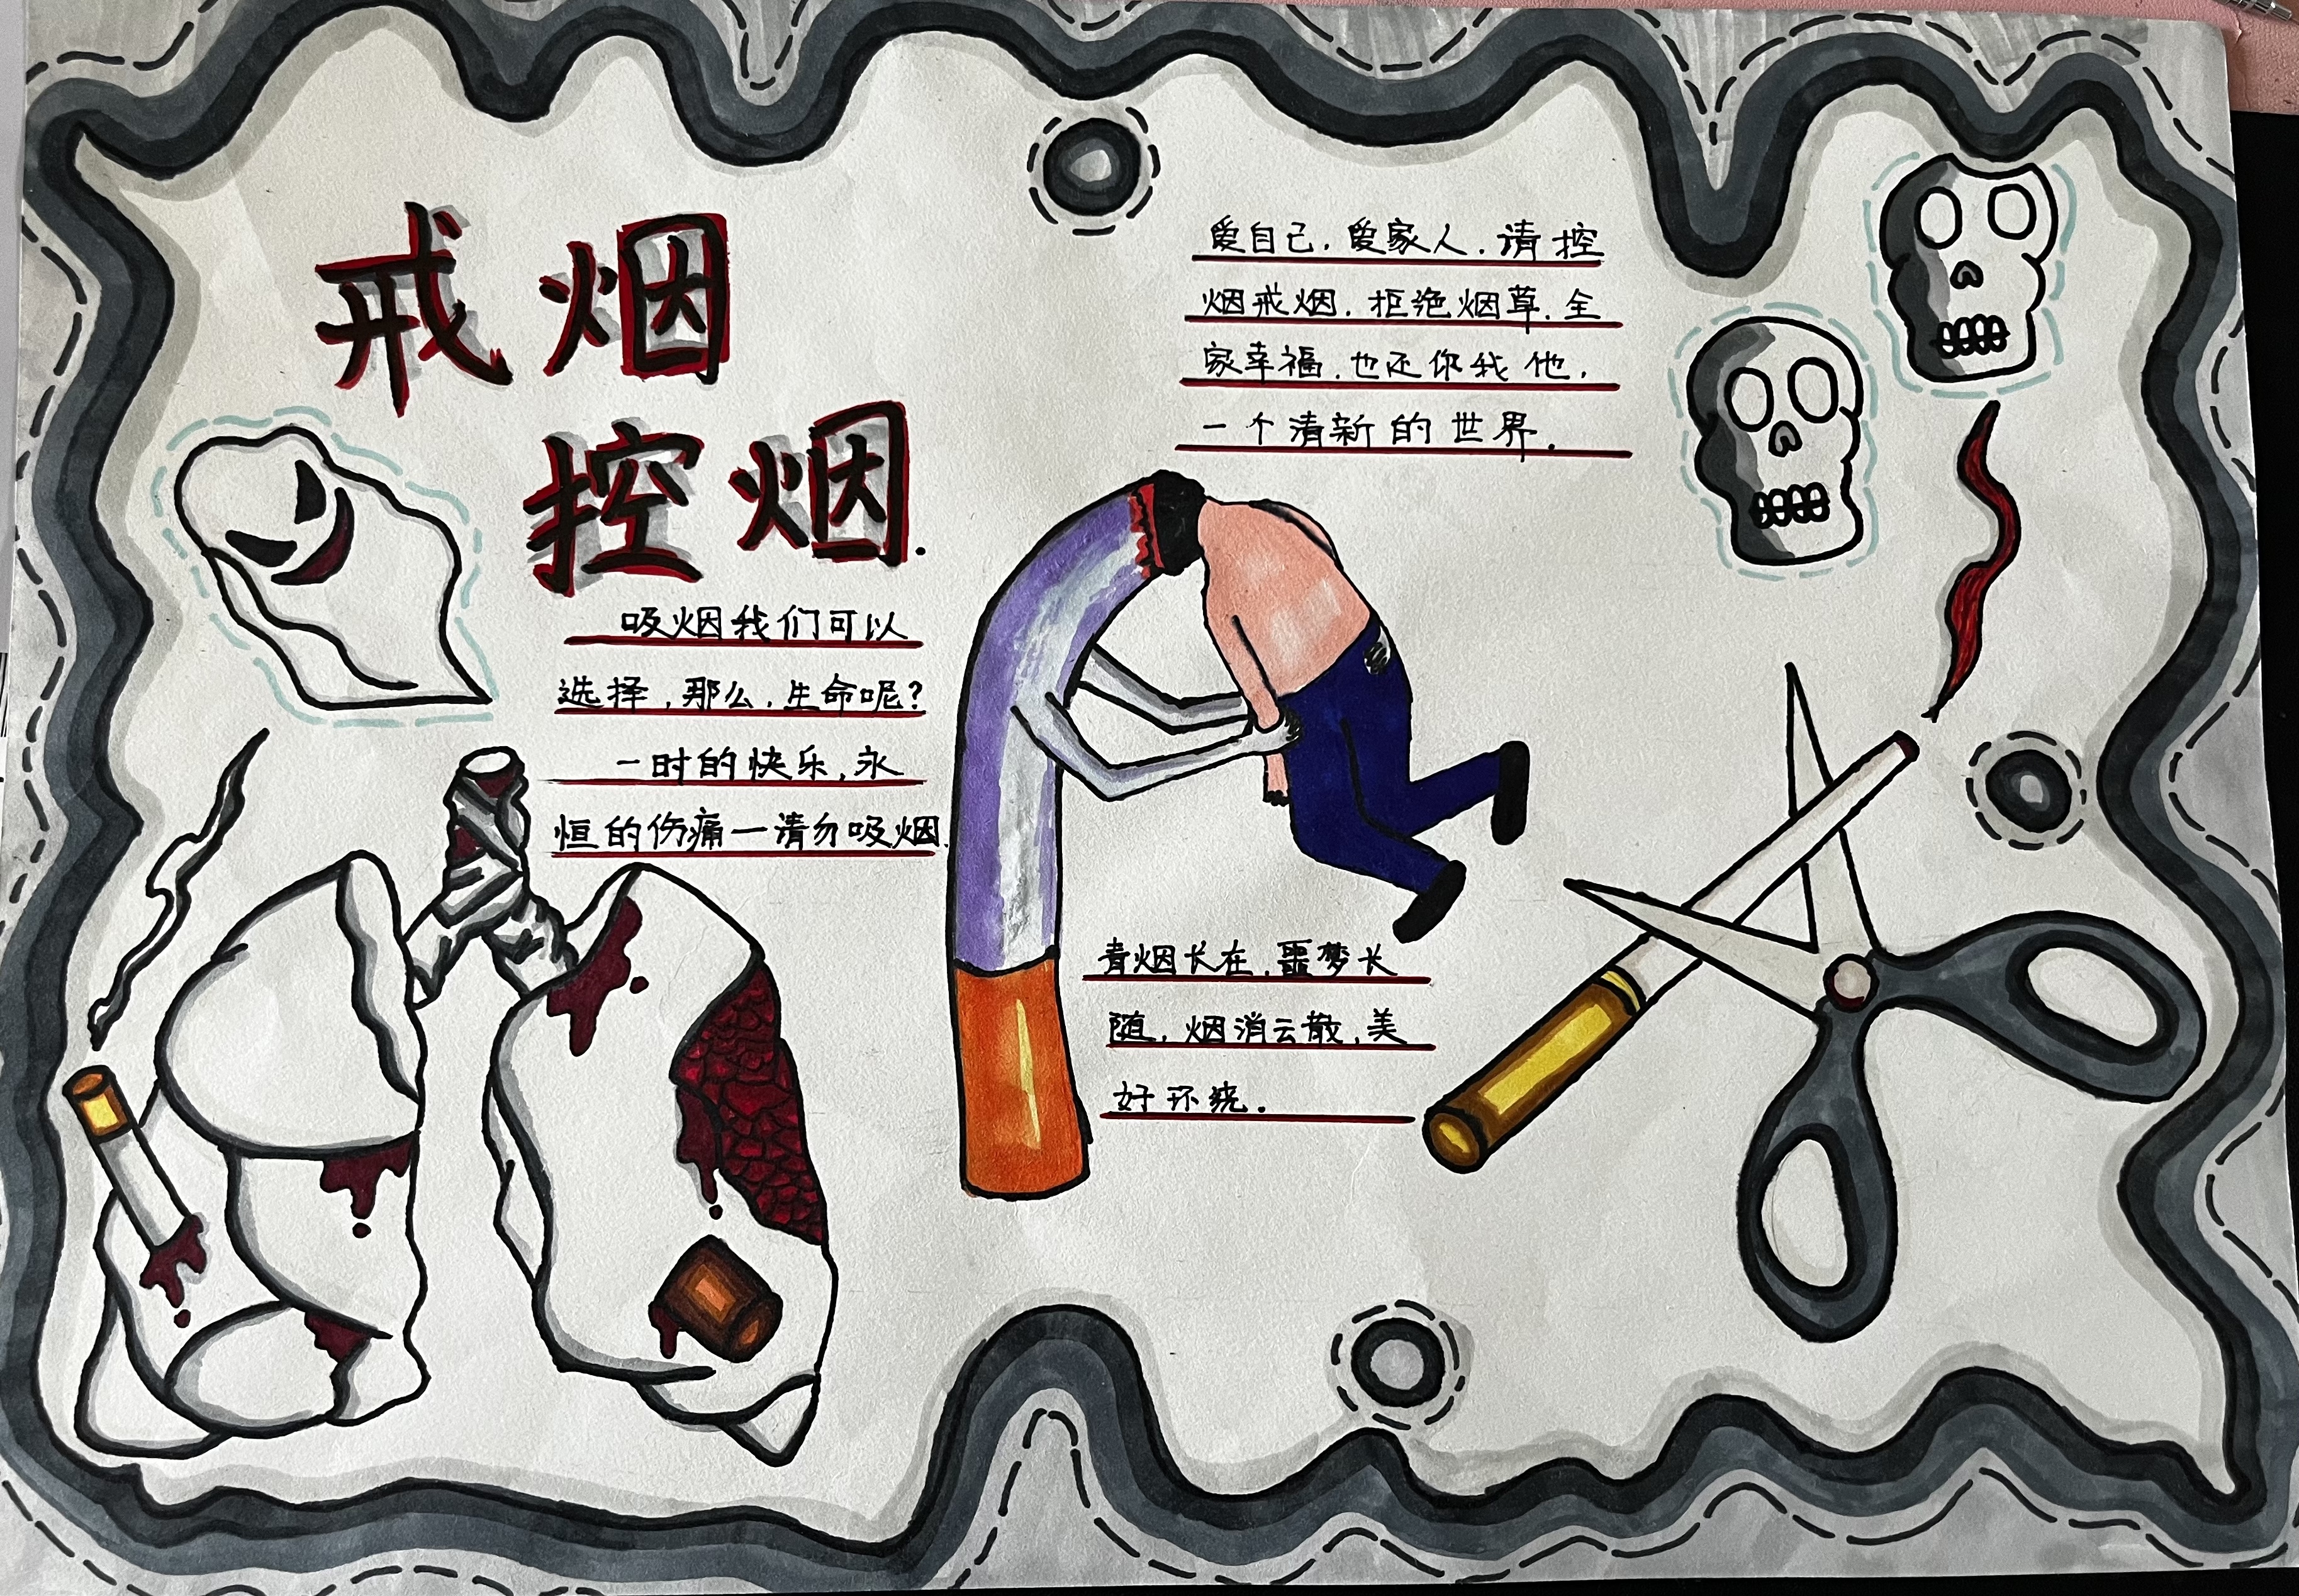 戒烟
控烟.
吸烟我们可以
选择,那么,生命呢?
一时的快乐,永
恒的伤痛一请勿吸烟.
爱自己,爱家人,请控
烟戒烟,拒绝烟草,全
家幸福,也还你我他,
一个清新的世界.
青烟长在,噩梦长
随,烟消云散,美
好环绕.